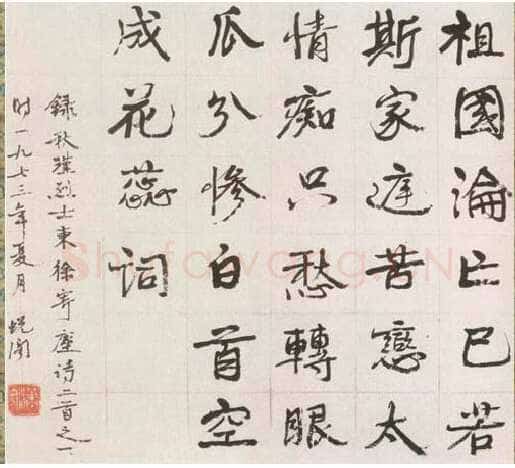 祖國淪亡已若
斯家庭苦戀太
情痴只愁轉眼
瓜分慘白首空
成花蕊詞
錄秋瑾烈士柬徐寄塵诗二首之一
时一九七三年夏月
Shufawang.CN